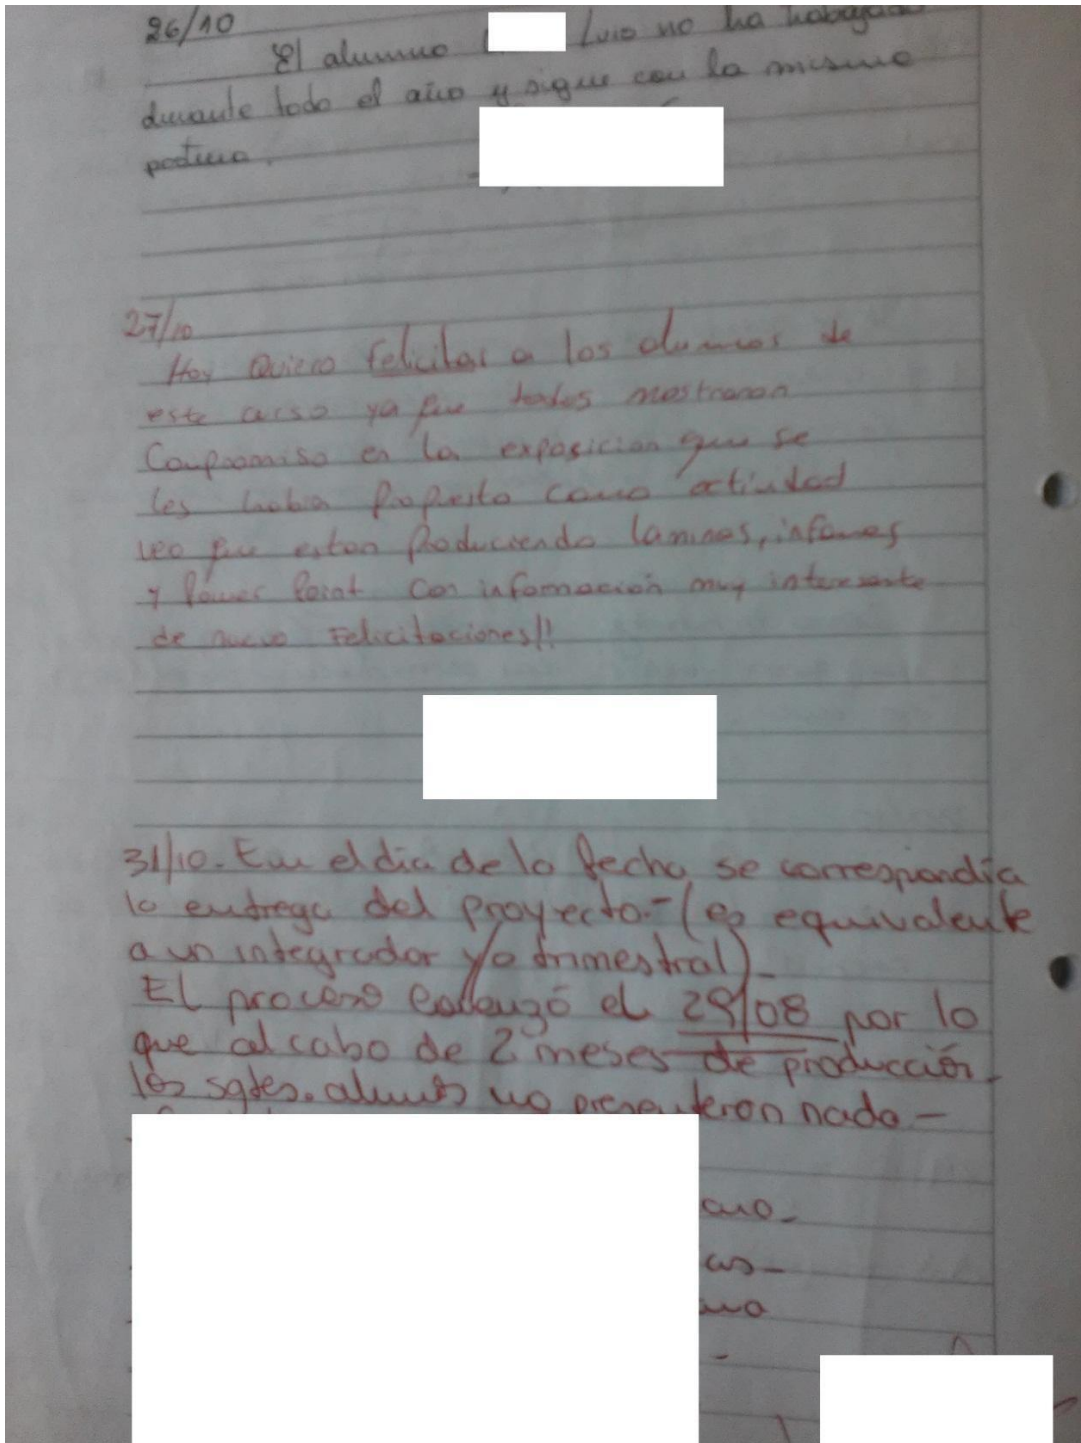 26/10
El alumno Luis no ha trabajado
durante todo el año y sigue con la misma
postura.
27/10
Hoy Quiero felicitar a los alumnos de
este curso ya que todos mostraron
Compromiso en la exposicion que se
les habia propuesto como actividad
veo que estan produciendo laminas, informes
y Power Point con información muy interesante
de nuevo Felicitaciones!!
31/10. En el día de la fecha se correspondía
la entrega del proyecto.- (es equivalente
a un integrador y/o trimestral)-
El proceso comenzó el 29/08 por lo
que al cabo de 2 meses de producción
los sgtes. alumnos no presentaron nada-